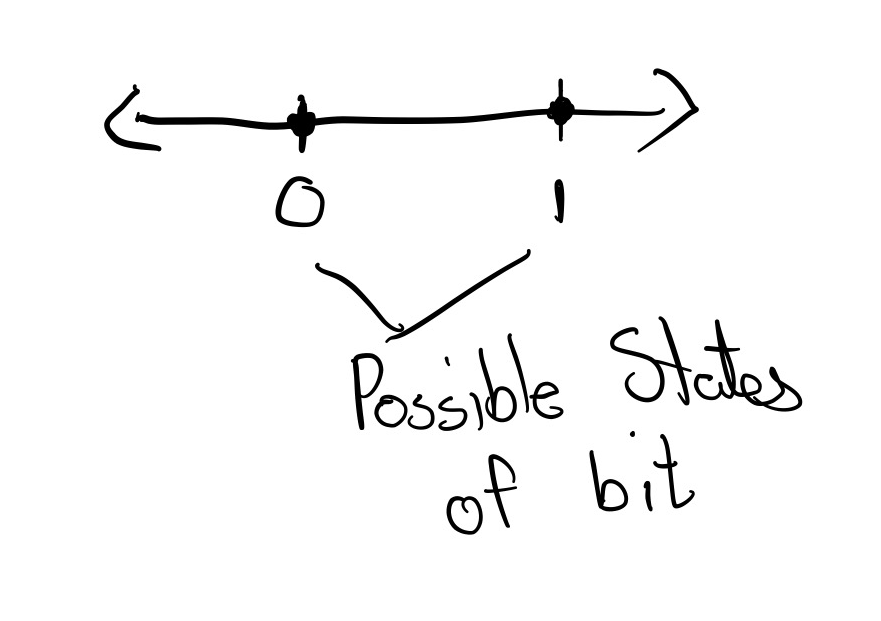 0 1
Possible States
of bit